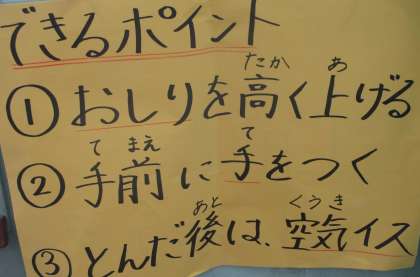 できるポイント
①おしりを高く上げる
②手前に手をつく
③とんだ後は、空気イス